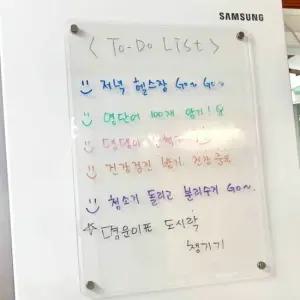 SAMSUNG
< To-Do List >
저녁 헬스장 Go~ Go~
영단어 100개 암기!
건강검진 받기 건강 중요
청소기 돌리고 분리수거 Go~.
도시락
챙기기